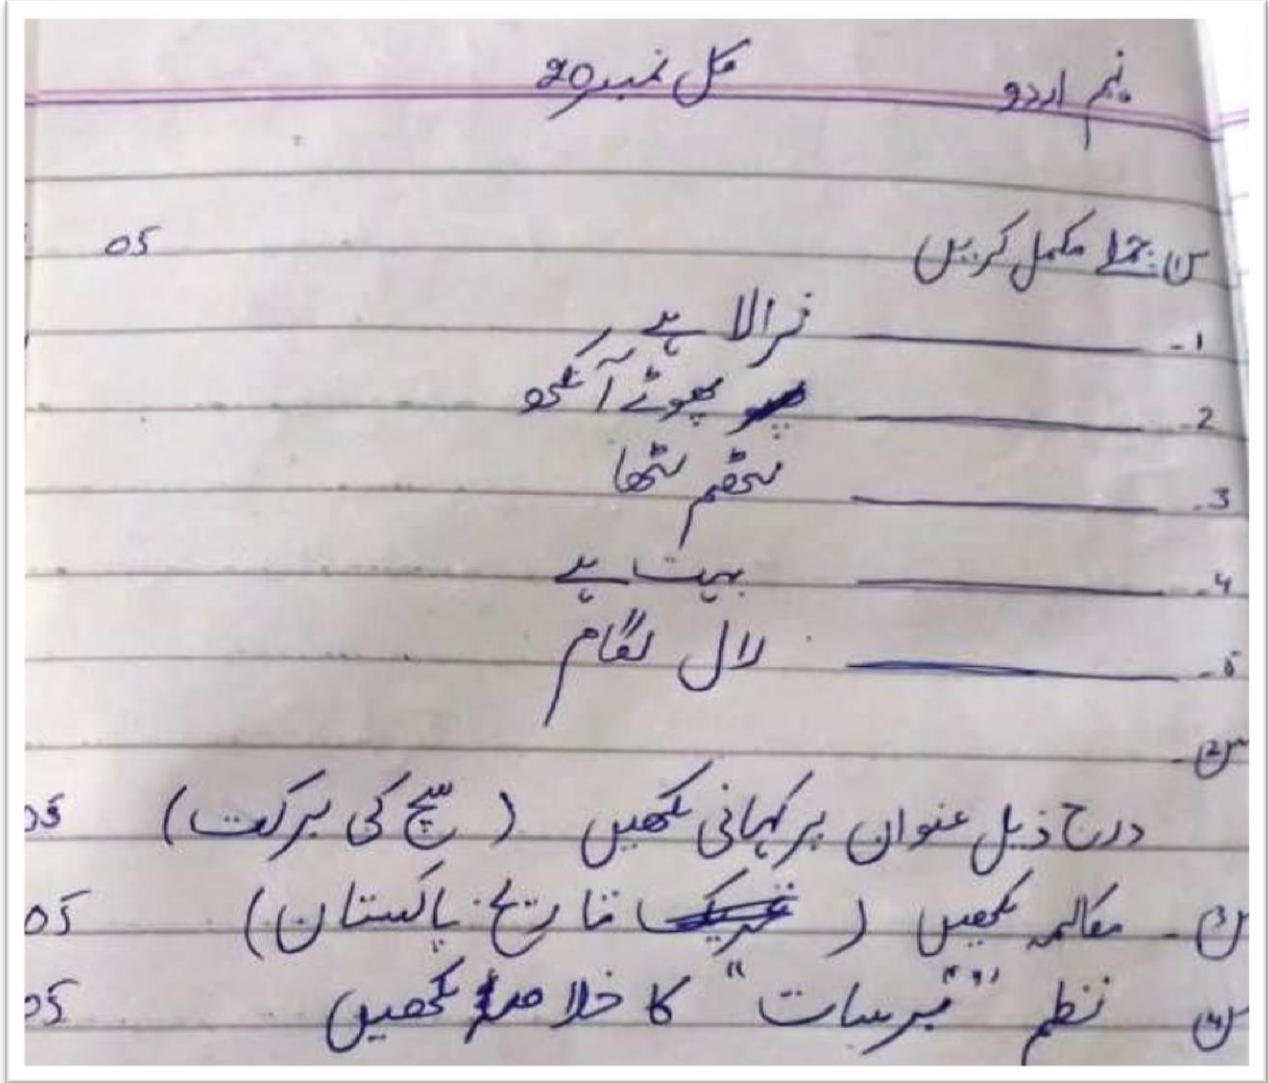 نہم اردو کل نمبر 20
س1) جملے مکمل کریں 05
1- ________ نرالا ہے
2- ________ پھوٹے آنکھ
3- ________ لٹھم لٹھا
4- ________ بہت ہے
5- ________ لال لگام
س2)
درج ذیل عنوان پر کہانی لکھیں ( سچ کی برکت ) 05
س3)- مکالمہ لکھیں ( تاریخ پاکستان ) 05
س4) نظم "برسات" کا خلاصہ لکھیں 05